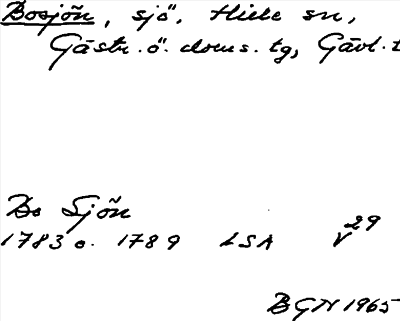 Bosjön, sjö, Hille sn,
Gästr. ö. doms. tg, Gävl. l
Bo Sjön
1783 o. 1789 LSA V29
BGN 1965